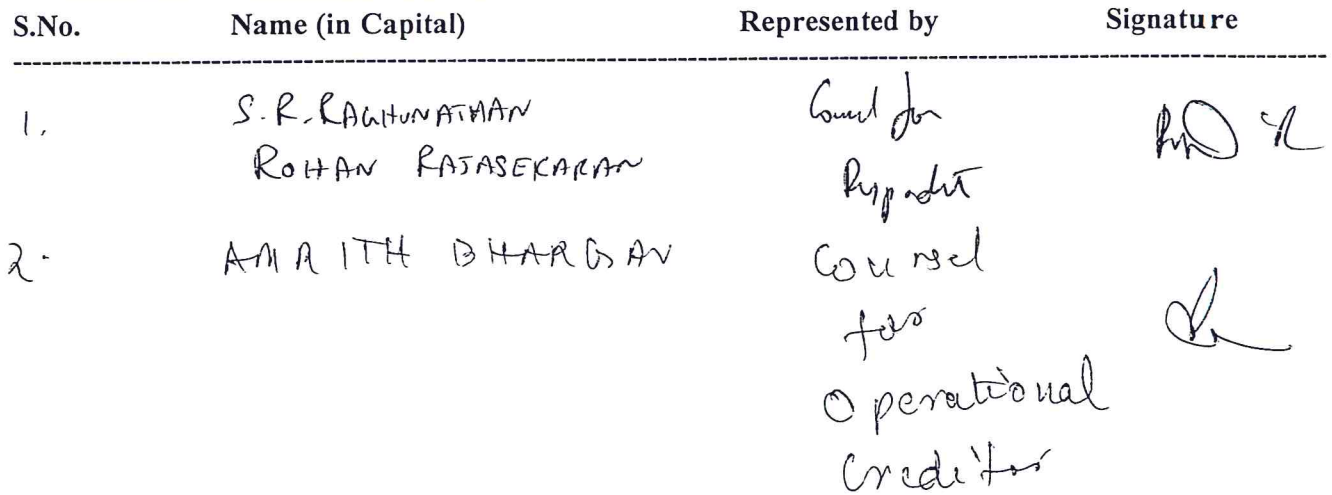 S.No. Name (in Capital) Represented by Signature
1. S. R. RAGHUNATHAN Counsel for
ROHAN RAJASEKARAN Respondent
2. AMRITH BHARGAV Counsel
for
Operational
Creditor